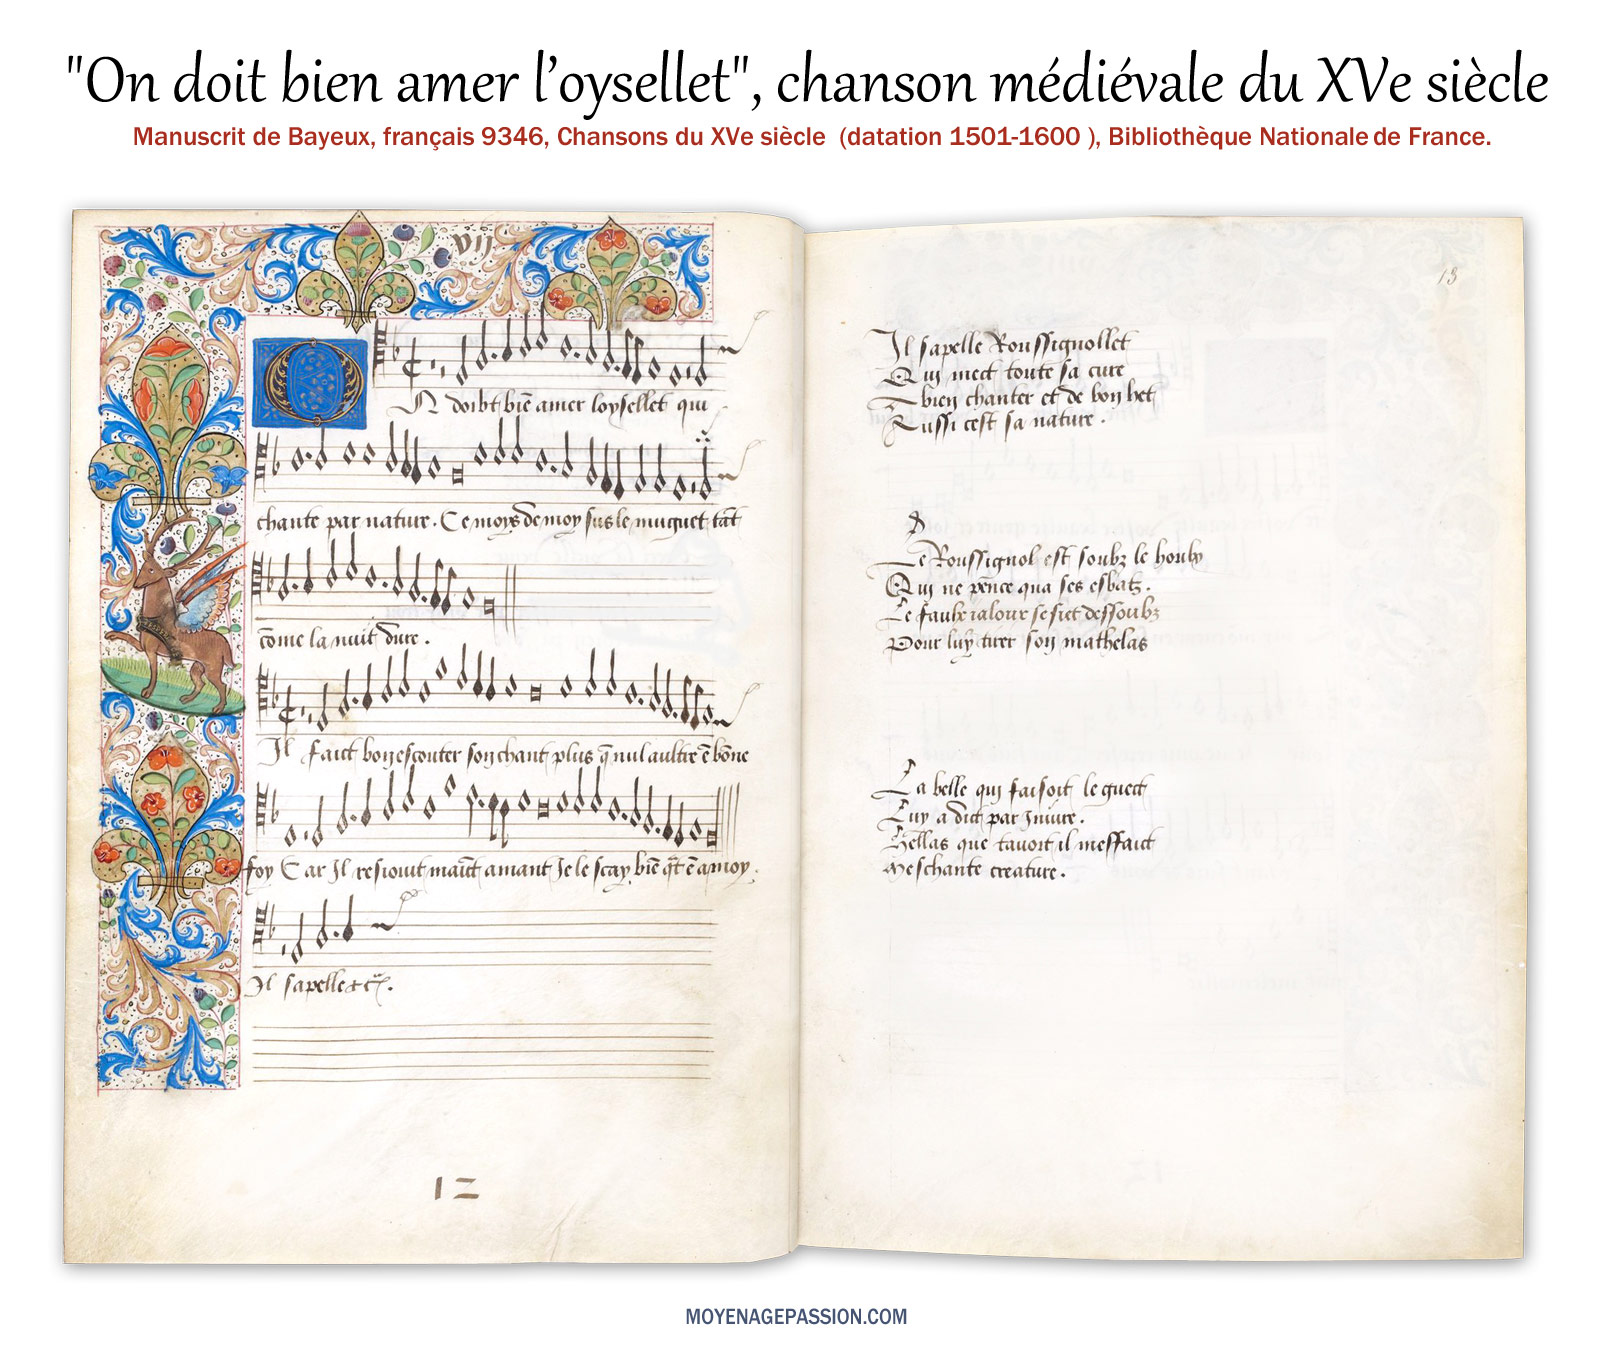 "On doit bien amer l’oysellet", chanson médiévale du XVe siècle
Manuscrit de Bayeux, français 9346, Chansons du XVe siècle (datation 1501-1600 ), Bibliothèque Nationale de France.
vij
On doibt biē amer loysellet qui
chante par nature. Ce moys de moy sus le muguet tāt
cōme la nuit dure.
Il faict bon escouter son chant plus q̄ nul aultre ē bōne
foy Car Il resiouit mait amant Je le scay biē q̄t ē a moy.
Il sapelle
12
13
Il sapelle Roussignollet
Qui mect toute sa cure
A bien chanter et de bon het
Aussi cest sa nature.
Le Roussignol est soubz le houlx
Qui ne pence qua ses esbatz.
Le faulx ialoux se siet dessoubz
Pour luy tirer son mathelas
La belle qui faisoit le guect
Luy a dict par Iniure.
Hellas que tavoit il meffaict
Meschante creature.
MOYENAGEPASSION.COM